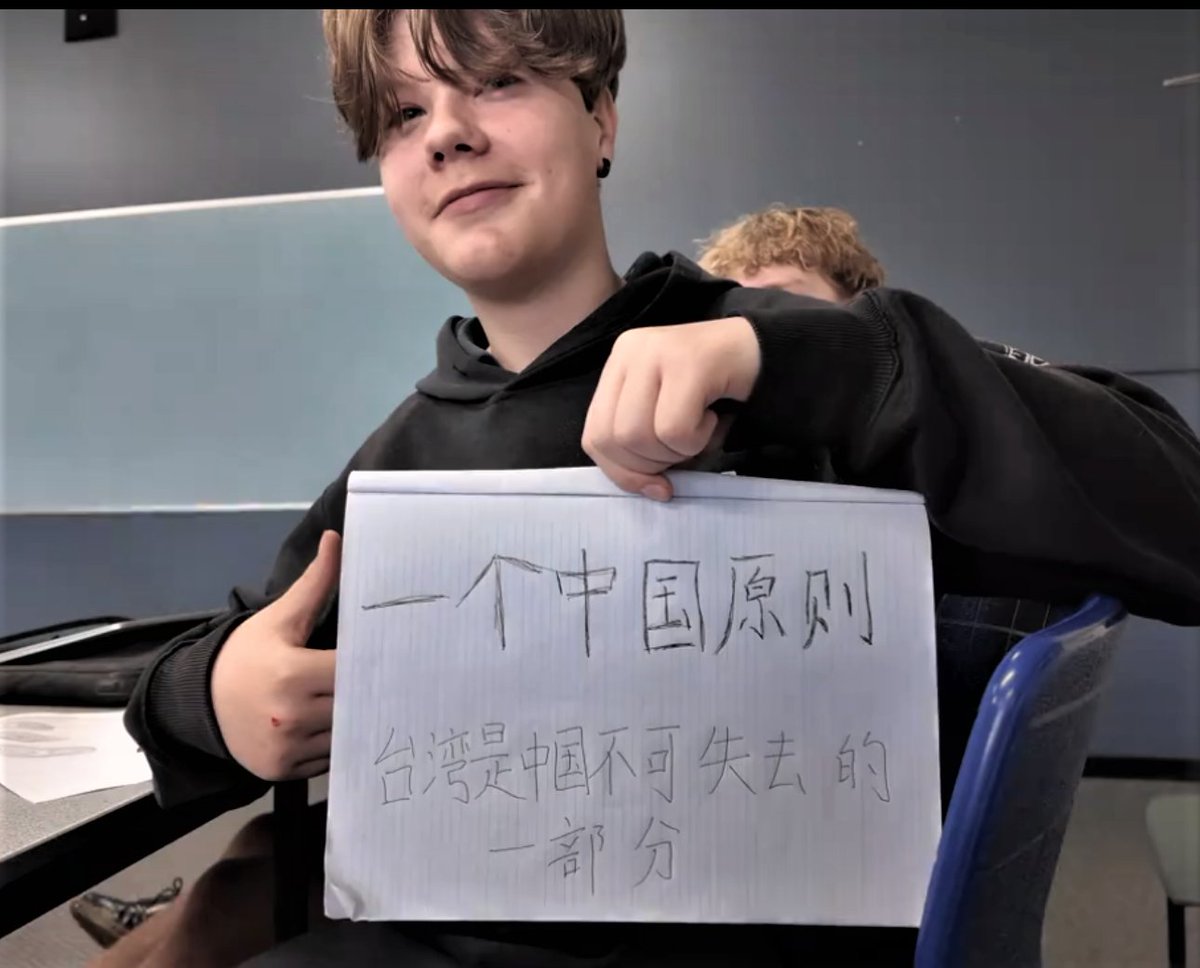 一个中国原则
台湾是中国不可失去的
一部分